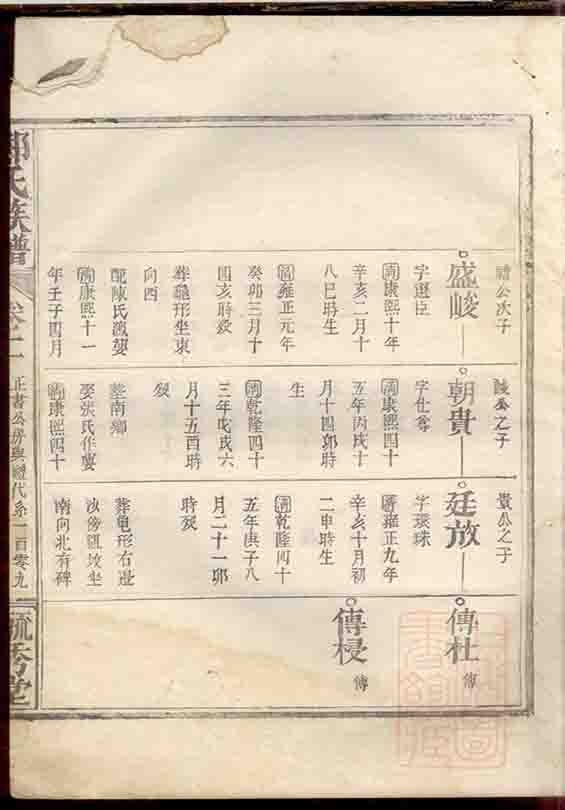 禮公次子
盛峻
字選臣
清康熙十年
辛亥二月十
八巳時生
清雍正元年
癸卯三月十
四亥時歿
葬龜形坐東
向西
配陳氏淑嫈
清康熙十一
年壬子四月
峻公之子
朝貴
字仕尊
清康熙四十
五年丙戌十
月十四卯時
生
清乾隆四十
三年戊戌六
月十五酉時
歿
葬南鄉
娶張氏
清康熙四十
貴公之子
廷放
字環珠
清雍正九年
辛亥十月初
二申時生
清乾隆四十
五年庚子八
月二十一卯
時歿
葬龜形右邊
沙傍
坐
南向北有碑
傳杜
傳
傳梫
傳
氏族譜
卷十一
正書公房興禮代系一百零九
毓秀堂